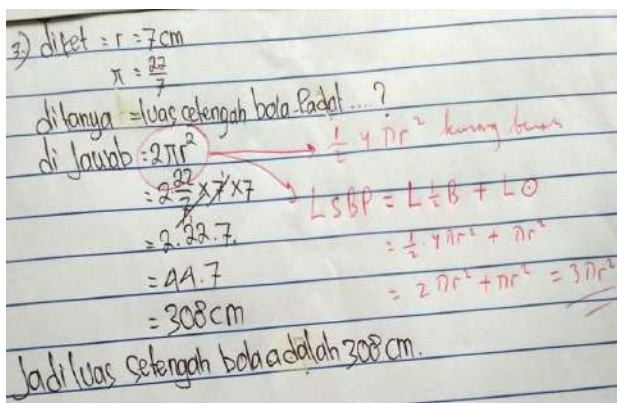 3.) diket : r = 7 cm
π = 22/7
ditanya = luas cetengah bola Padat ... ?
di Jawab : 2πr²
= 2 22/7 × 7 × 7
= 2.22.7.
= 44.7
= 308 cm
Jadi luas setengah bola adalah 308 cm.
1/2 4 πr² kurang benar
LSBP = L 1/2 B + L O
= 1/2 . 4πr² + πr²
= 2πr² + πr² = 3πr²